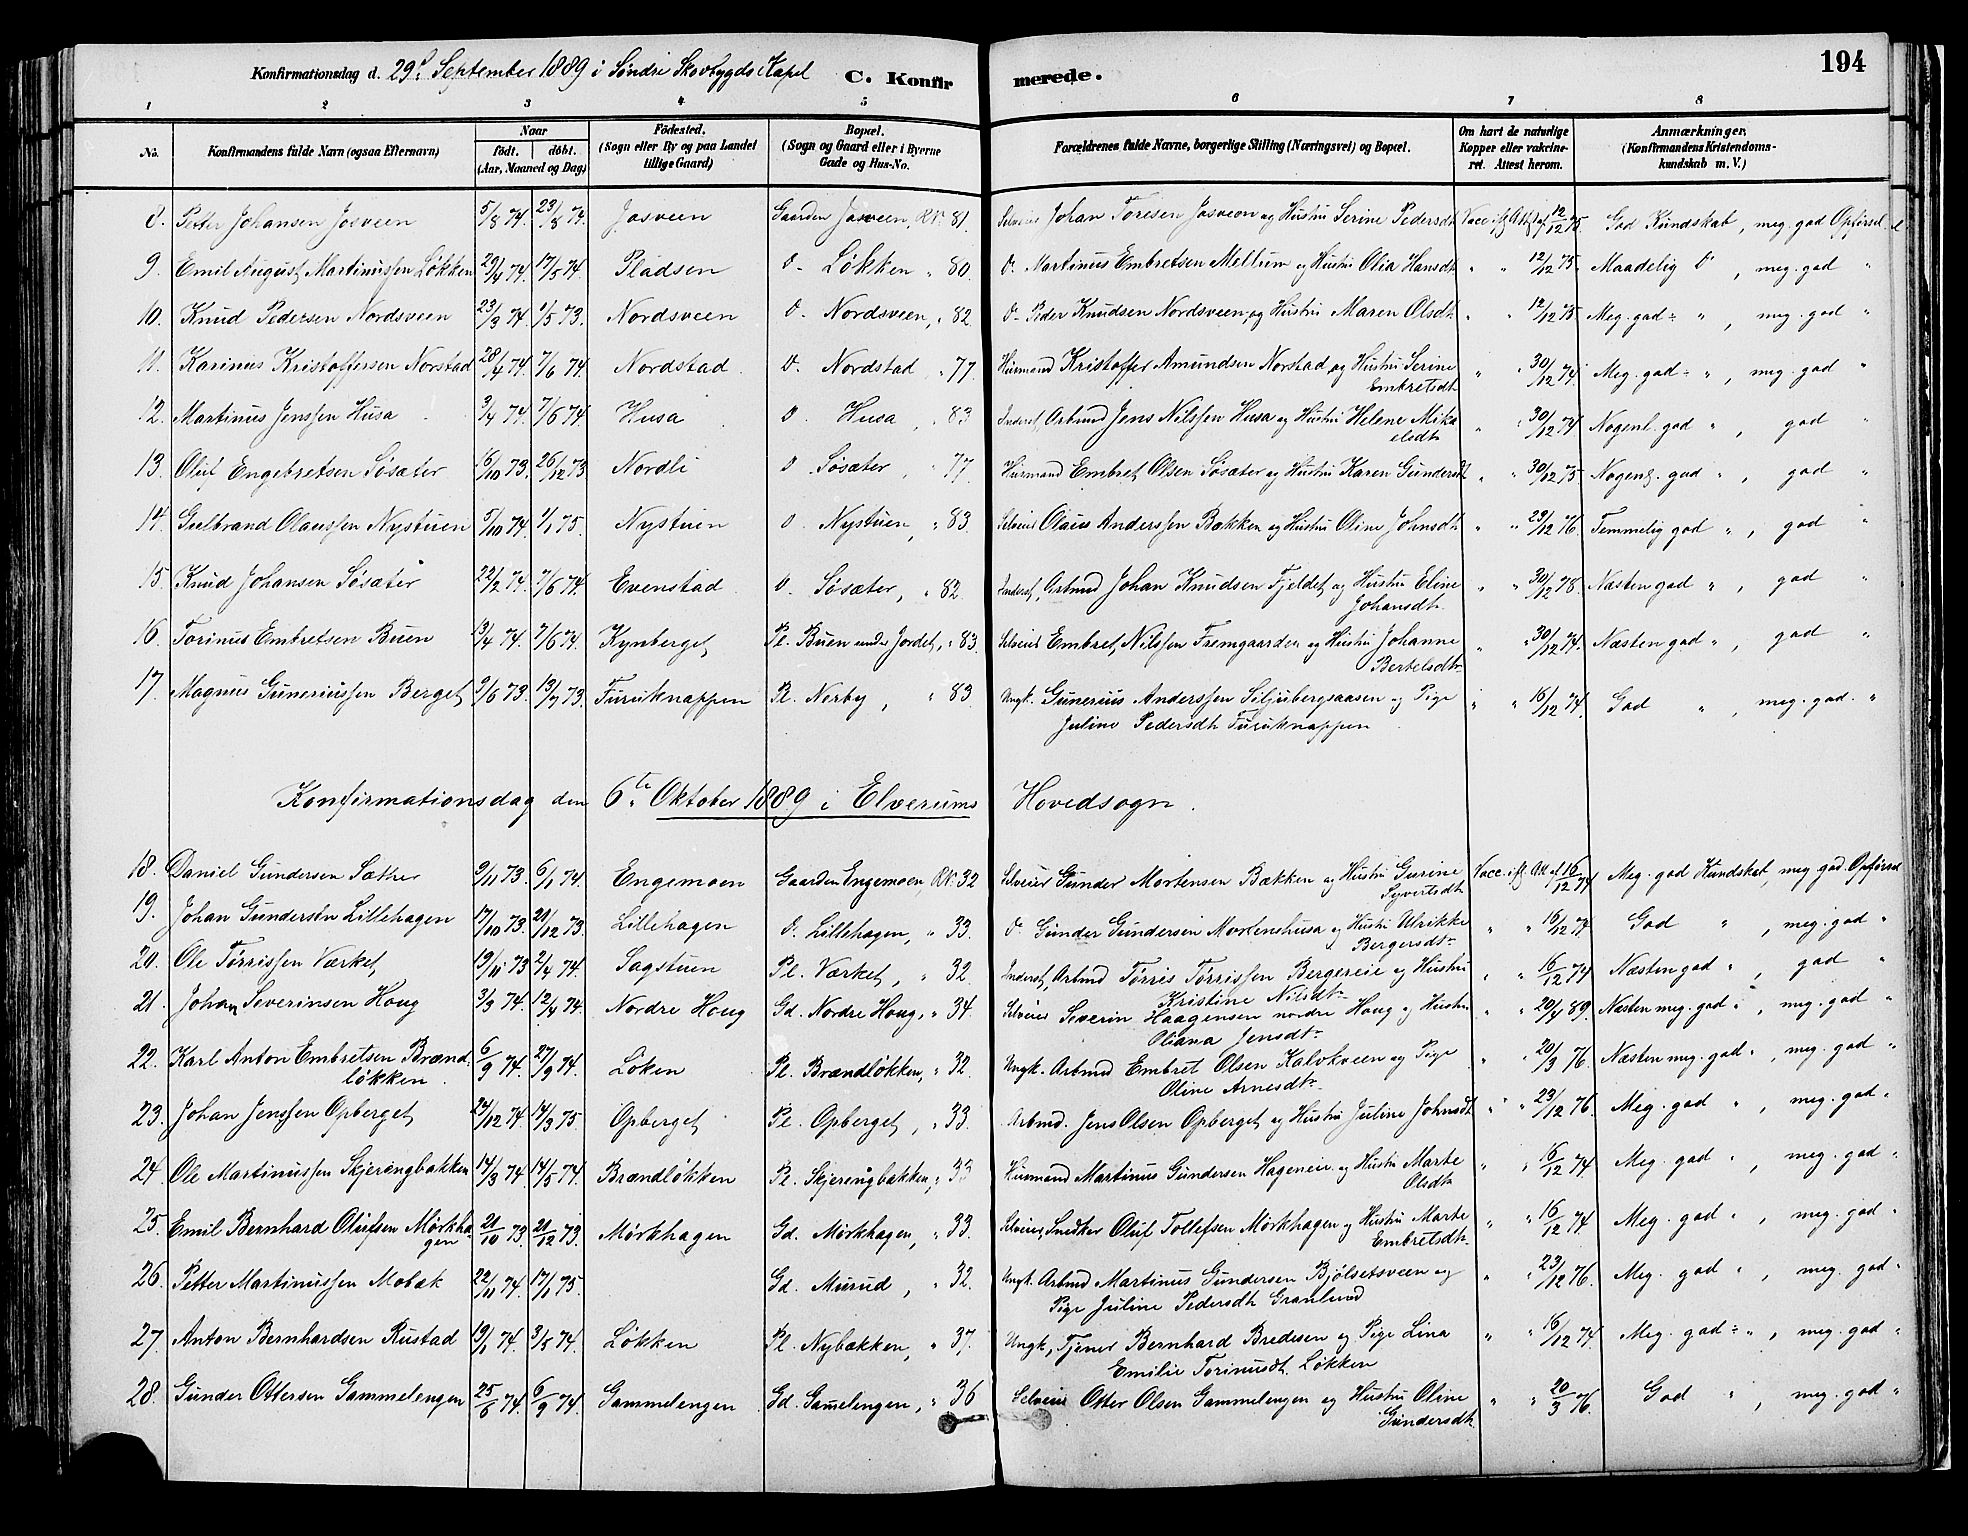 194
Konfirmationsdag d. 29de September 1889 i Søndre Skovbygds Kapel C. Konfirmerede.
1 2 3 4 5 6 7 8
No. Konfirmandens fulde Navn (ogsaa Efternavn) Naar født. døbt. (Aar, Maaned og Dag) Fødested. (Sogn eller By og paa Landet tillige Gaard) Bopæl. (Sogn og Gaard eller i Byerne Gade og Hus-No. Forældrenes fulde Navne, borgerlige Stilling (Næringsvei) og Bopæl. Om havt de naturlige Kopper eller vakcineret. Attest herom. Anmærkninger. (Konfirmandens Kristendomskundskab m. V.)
8. Petter Johansen Josveen 5/8 74. 23/8 74. Josveen Gaarden Josveen, RN. 81. Selveier Johan Toresen Josveen og Hustru Serine Pedersdt. Vacc. ifg Att. af 12/12 75. God Kundskab, meg. god Opførsel
9. Emil August Martinussen Løkken 29/4 74. 17/5 74. Pladsen d. Løkken " 80. d. Martinus Embretsen Mellum og Hustru Olia Hansdt. " " 12/12 75 Maadelig d, meg. god "
10. Knud Pedersen Nordsveen 23/3 74. 1/5 73. Nordsveen d. Nordsveen, " 82. d. Peder Knudsen Nordsveen, og Hustru Maren Olsdt. " " 12/12 75 Meg. god ÷ ", meg. god "
11. Karinus Kristoffersen Norstad 28/4 74. 7/6 74. Nordstad d. Nordstad " 77. Husmand Kristoffer Amundsen Norstad og Hustru Serine Embretsdt. " " 30/12 74. Meg. god ÷ ", meg. god "
12. Martinus Jenssen Husa 3/4 74. 7/6 74. Husa d Husa " 83 Inderst, Arbmd Jens Nilssen Husa og Hustru Helene Mikaelsdt. " " 30/12 74 Nogenl. god ", god "
13. Oluf Engebretsen Søsæter 16/10 73. 26/12 73 Nordli d Søsæter, " 77. Husmand Embret Olsen Søsæter og Hustru Karen Gundersdt " " 30/12 75 Nogenl. god ", god "
14. Gulbrand Olaussen Nystuen 5/10 74. 1/1 75. Nystuen d. Nystuen, " 83. Selveier Olaus Anderssen Bakken og Hustru Oline Johnsdt. " " 23/12 76. Temmelig god ", god "
15. Knud Johansen Søsæter 22/2 74. 7/6 74. Evenstad d. Søsæter, " 82. Inderst, Arbmd Johan Knudsen Fjeldet og Hustru Eline Johansdt. " " 30/12 78. Næsten god ", god "
16. Torinus Embretsen Buen 13/4 74. 7/6 74. Kynberget Pl. Buen under Jordet, " 83. Selveier Embret Nilssen Fremgaarden og Hustru Johanne Bertelsdt. " " 30/12 74. Næsten god ", god "
17. Magnus Gunerussen Berget 9/6 73. 13/7 73. Furuknappen Pl. Nerby, " 83 Ungk. Gunerius Anderssen Siljubergsaasen og Pige Juline Pedersdt. Furuknappen " " 16/12 74. God ", meg. god. "
Konfirmationsdag den 6te Oktober 1889 i Elverums Hovedsogn.
18. Daniel Gundersen Sæther 9/11 73. 6/1 74. Engemoen Gaarden Engemoen, RN. 32 Selveier Gunder Mortensen Bakken og Hustru Gurine Syvertsdt. Vacc. ifg Att af 16/12 74 Meg. god Kundskab, meg god Opførsel
19. Johan Gundersen Lillehagen 17/10 73. 21/12 73. Lillehagen d. Lillehagen, " 33. d. Gunder Gundersen Mortenshusa og Hustru Ulrikke Bergersdt. " " 16/12 74 God ", meg. god "
20. Ole Tørrissen Værket 19/11 73 2/4 74. Sagstuen Pl. Værket, " 32. Inderst, Arbmd Tørris Tørrissen Bergereie og Hustru Kristine Nilsdt. " " 16/12 74 Næsten god ", god "
21. Johan Severinsen Houg 3/3 74. 12/4 74. Nordre Houg Gd. Nordre Houg, " 34. Selveier Severin Haagensen nordre Houg og Hustru Oliana Jensdt. " " 20/4 89. Næsten meg. god ", meg. god "
22. Karl Anton Embretsen Brændløkken. 6/9 74. 27/9 74. Løken Pl. Brændløkken, " 32. Ungk. Arbmd Embret Olsen Kalvkveen og Pige Oline Arnesdt. " " 20/3 76. Næsten meg. god ", meg. god "
23. Johan Jenssen Opberget 24/12 74. 14/3 75. Opberget Pl. Opberget, " 33. Arbmd. Jens Olsen Opberget og Hustru Juline Johnsdt. " " 23/12 76. Meg. god ", meg. god "
24. Ole Martinussen Skjeringbakken 14/3 74. 14/5 74. Brændløkken Pl. Skjeringbakken, " 33 Husmand Martinus Gundersen Hageneie og Hustru Marte Olsdt. " " 16/12 74. Meg. god ", meg. god "
25. Emil Bernhard Olufsen Mørkhagen 21/10 73. 21/12 73. Mørkhagen Gd. Mørkhagen, " 33. Selveier, Snedker Oluf Tollefsen Mørkhagen og Hustru Marte Embretsdt. " " 16/12 74. Meg. god ", meg. god "
26. Petter Martinussen Mobæk 22/11 74. 17/1 75. Gd. Murud, " 32. Ungk. Arbmd Martinus Gundersen Bjølsetsveen og Pige Juline Pedersdt. Granlund " " 23/12 76. Meg. god ", meg. god "
27. Anton Bernhardsen Rustad 19/1 74. 3/5 74. Løkken Pl. Nybakken, " 37. Ungk, Tjener Bernhard Bredesen og Pige Lina Emilie Torinusdt. Løkken " " 16/12 74. Meg. god ÷ ", meg. god "
28. Gunder Ottersen Gammelengen 25/6 74. 6/9 74. Gammelengen Gd. Gammelengen, " 36 Selveier Otter Olsen Gammelengen og Hustru Oline Gundersdt. " " 20/3 76. God ", meg. god "